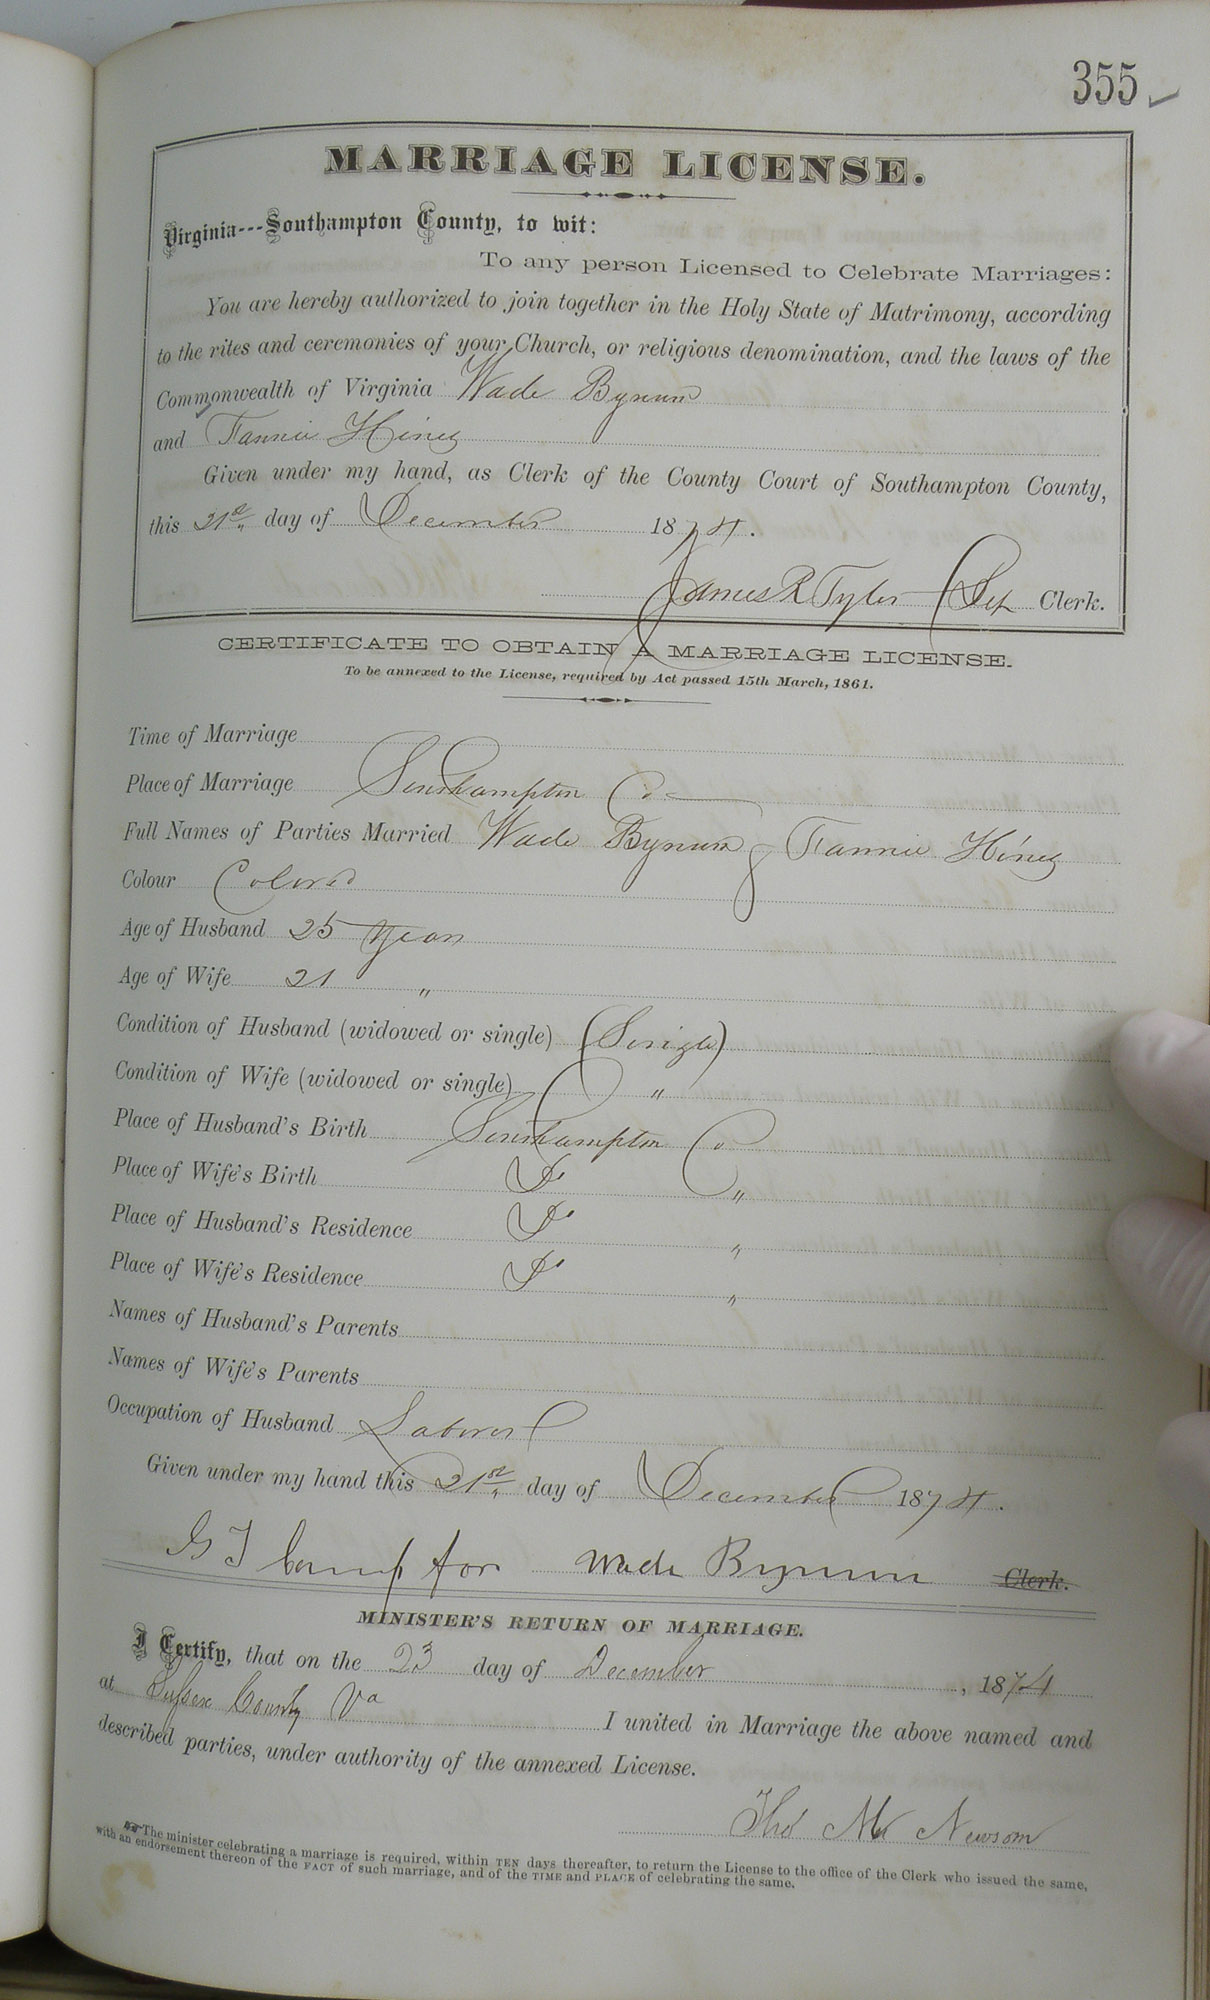 355
MARRIAGE LICENSE.
Virginia---Southampton County, to wit:
To any person Licensed to Celebrate Marriages:
You are hereby authorized to join together in the Holy State of Matrimony, according
to the rites and ceremonies of your Church, or religious denomination, and the laws of the
Commonwealth of Virginia Wade Bynum
and Fannie Hines
Given under my hand, as Clerk of the County Court of Southampton County,
this 21st day of December 1874.
James R Tyler Clerk.
CERTIFICATE TO OBTAIN A MARRIAGE LICENSE.
To be annexed to the License, required by Act passed 15th March, 1861.
Time of Marriage
Place of Marriage Southampton Co
Full Names of Parties Married Wade Bynum & Fannie Hines
Colour Colored
Age of Husband 25 Years
Age of Wife 21 "
Condition of Husband (widowed or single) (Single)
Condition of Wife (widowed or single) "
Place of Husband's Birth Southampton Co
Place of Wife's Birth Do "
Place of Husband's Residence Do "
Place of Wife's Residence Do "
Names of Husband's Parents
Names of Wife's Parents
Occupation of Husband Laborer
Given under my hand this 21st day of December 1874.
Wade Bynum Clerk.
MINISTER'S RETURN OF MARRIAGE.
I Certify, that on the 23 day of December, 1874
at Sussex County Va I united in Marriage the above named and
described parties, under authority of the annexed License.
Newsom
The minister celebrating a marriage is required, within TEN days thereafter, to return the License to the office of the Clerk who issued the same,
with an endorsement thereon of the FACT of such marriage, and of the TIME and PLACE of celebrating the same.